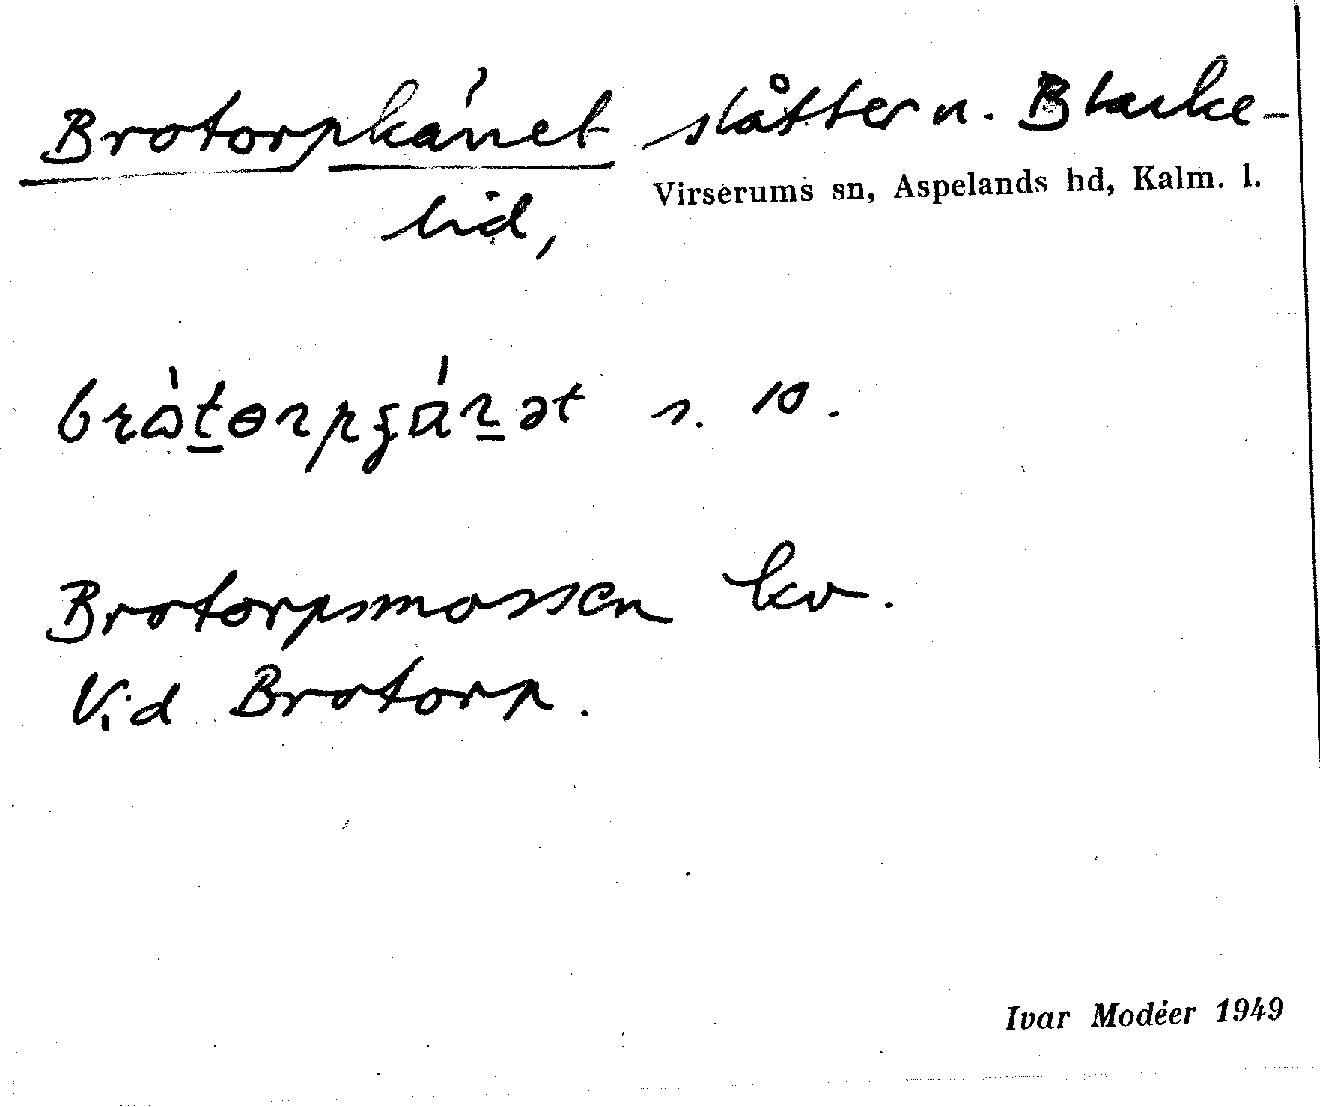 Brotorpkánet slåtter n. Blacke-
lid, Virserums sn, Aspelands hd, Kalm. l.
s. 10.
Brotorpsmossen kv.
Vid Brotorp.
Ivar Modéer 1949